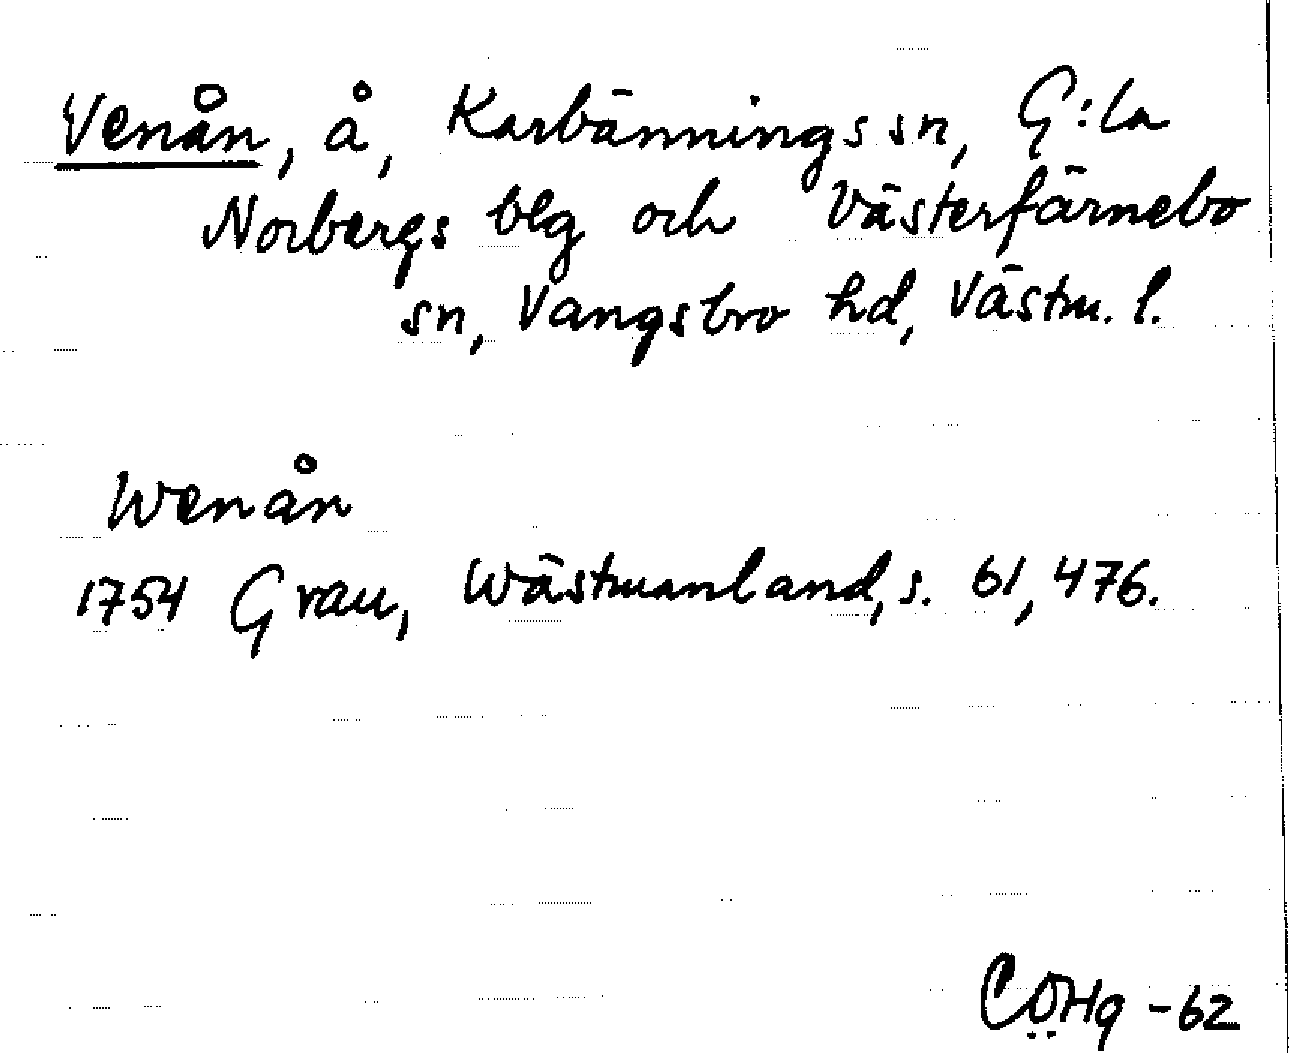 Venån, å, Karbännings sn, G:la
Norbergs blg och Västerfärnebo
sn, Vangsbro hd, Västm. l.
Wenån
1754 Grau, Wästmanland, s. 61, 476.
CÖHg -62